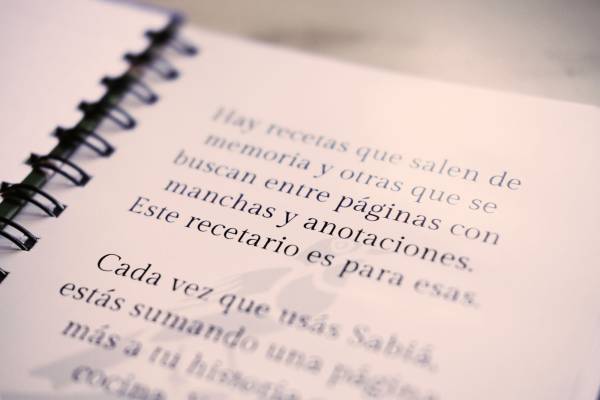 Hay recetas que salen de
memoria y otras que se
buscan entre páginas con
manchas y anotaciones.
Este recetario es para esas.
Cada vez que usás Sabiá,
estás sumando una página
más a tu historia
cocina,